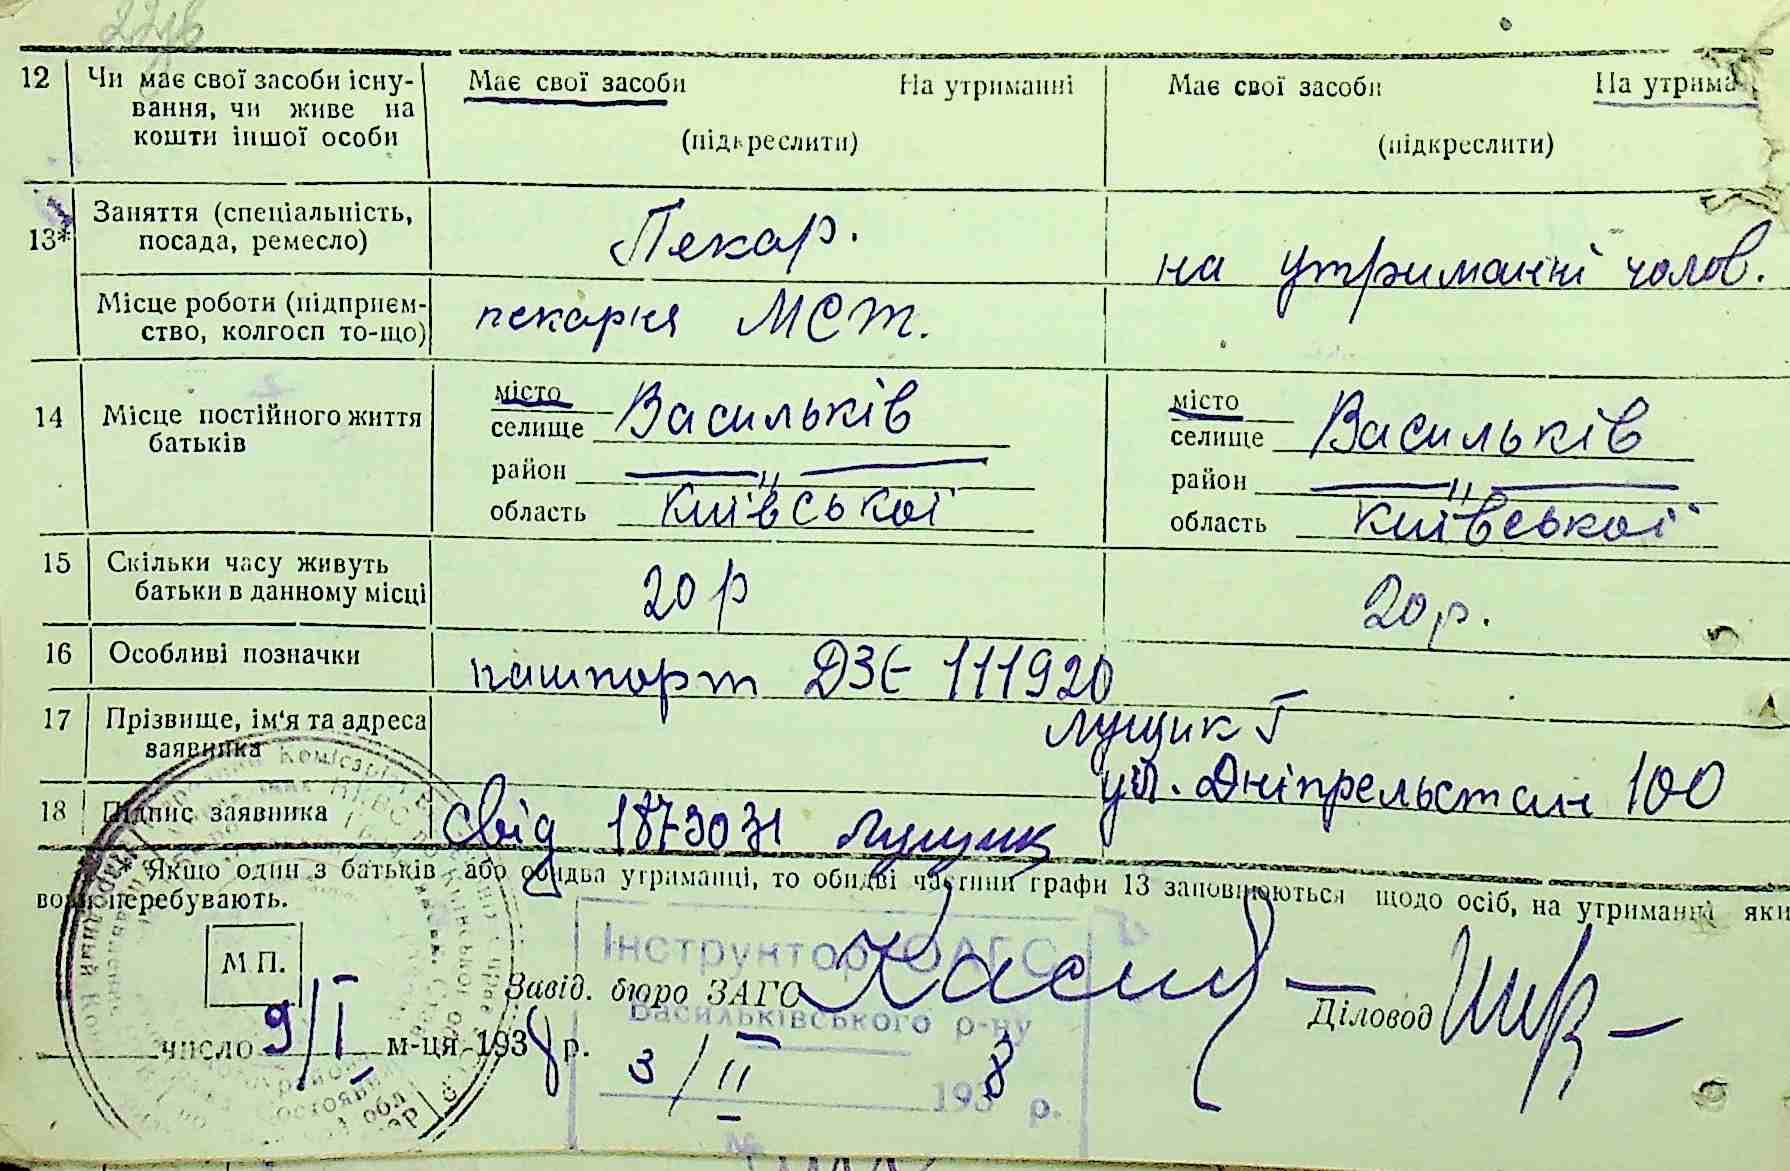 12 Чи має свої засоби існу- Має свої засоби На утриманні Має свої засоби На утрима
вання, чи живе на
кошти іншої особи (підкреслити) (підкреслити)
Заняття (спеціальність, Пекар. на утриманні чолов.
13* посада, ремесло)
Місце роботи (підприєм- пекарня МСТ.
ство, колгосп то-що)
місто місто
14 Місце постійного життя селище Васильків селище Васильків
батьків
район —„— район —„—
область Київської область Київської
15 Скільки часу живуть 20 р 20 р.
батьки в данному місці
16 Особливі позначки пашпорт ДЗЄ 111920
17 Прізвище, ім'я та адреса Лущик Г
заявника ул. Дніпрельстан 100
18 Підпис заявника Свід Лущик
* Якщо один з батьків або обидва утриманці, то обидві частини графи 13 заповнюються щодо осіб, на утриманні яки
вони перебувають.
Інструктор ОАГС
М.П. Завід. бюро ЗАГС Діловод
Васильківського р-ну
число 9/I м-ця 1938 р.
3/II 1938 р.